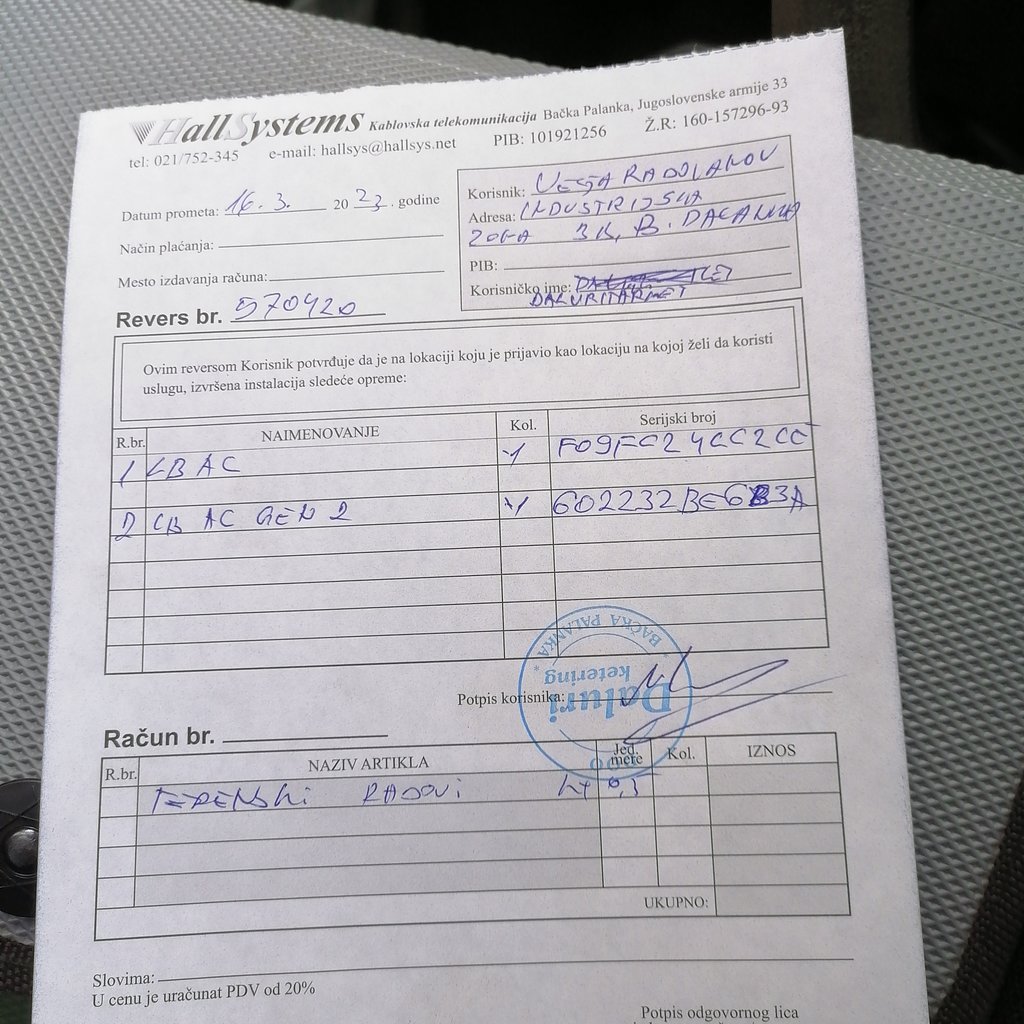 HallSystems Kablovska telekomunikacija Bačka Palanka, Jugoslovenske armije 33
tel: 021/752-345 e-mail: hallsys@hallsys.net PIB: 101921256 Ž.R: 160-157296-93
Datum prometa: 16. 3. 20 23. godine
Način plaćanja:
Mesto izdavanja računa:
Revers br. 570420
Korisnik: VESJA RADOVANOV
Adresa: INDUSTRIJSKA
ZONA 3K, B. PALANKA
PIB:
Korisničko ime:
DALURITARNET
Ovim reversom Korisnik potvrđuje da je na lokaciji koju je prijavio kao lokaciju na kojoj želi da koristi
uslugu, izvršena instalacija sledeće opreme:
R.br. NAIMENOVANJE Kol. Serijski broj
1 LB AC 1 F09FC24CC2CC
2 LB AC GEN 2 1 602232BE6B3A
* BAČKA PALANKA *
ketering
Daluri
Potpis korisnika:
Račun br.
R.br. NAZIV ARTIKLA Jed. mere Kol. IZNOS
TERENSKI RADOVI h 0,5
UKUPNO:
Slovima:
U cenu je uračunat PDV od 20%
Potpis odgovornog lica